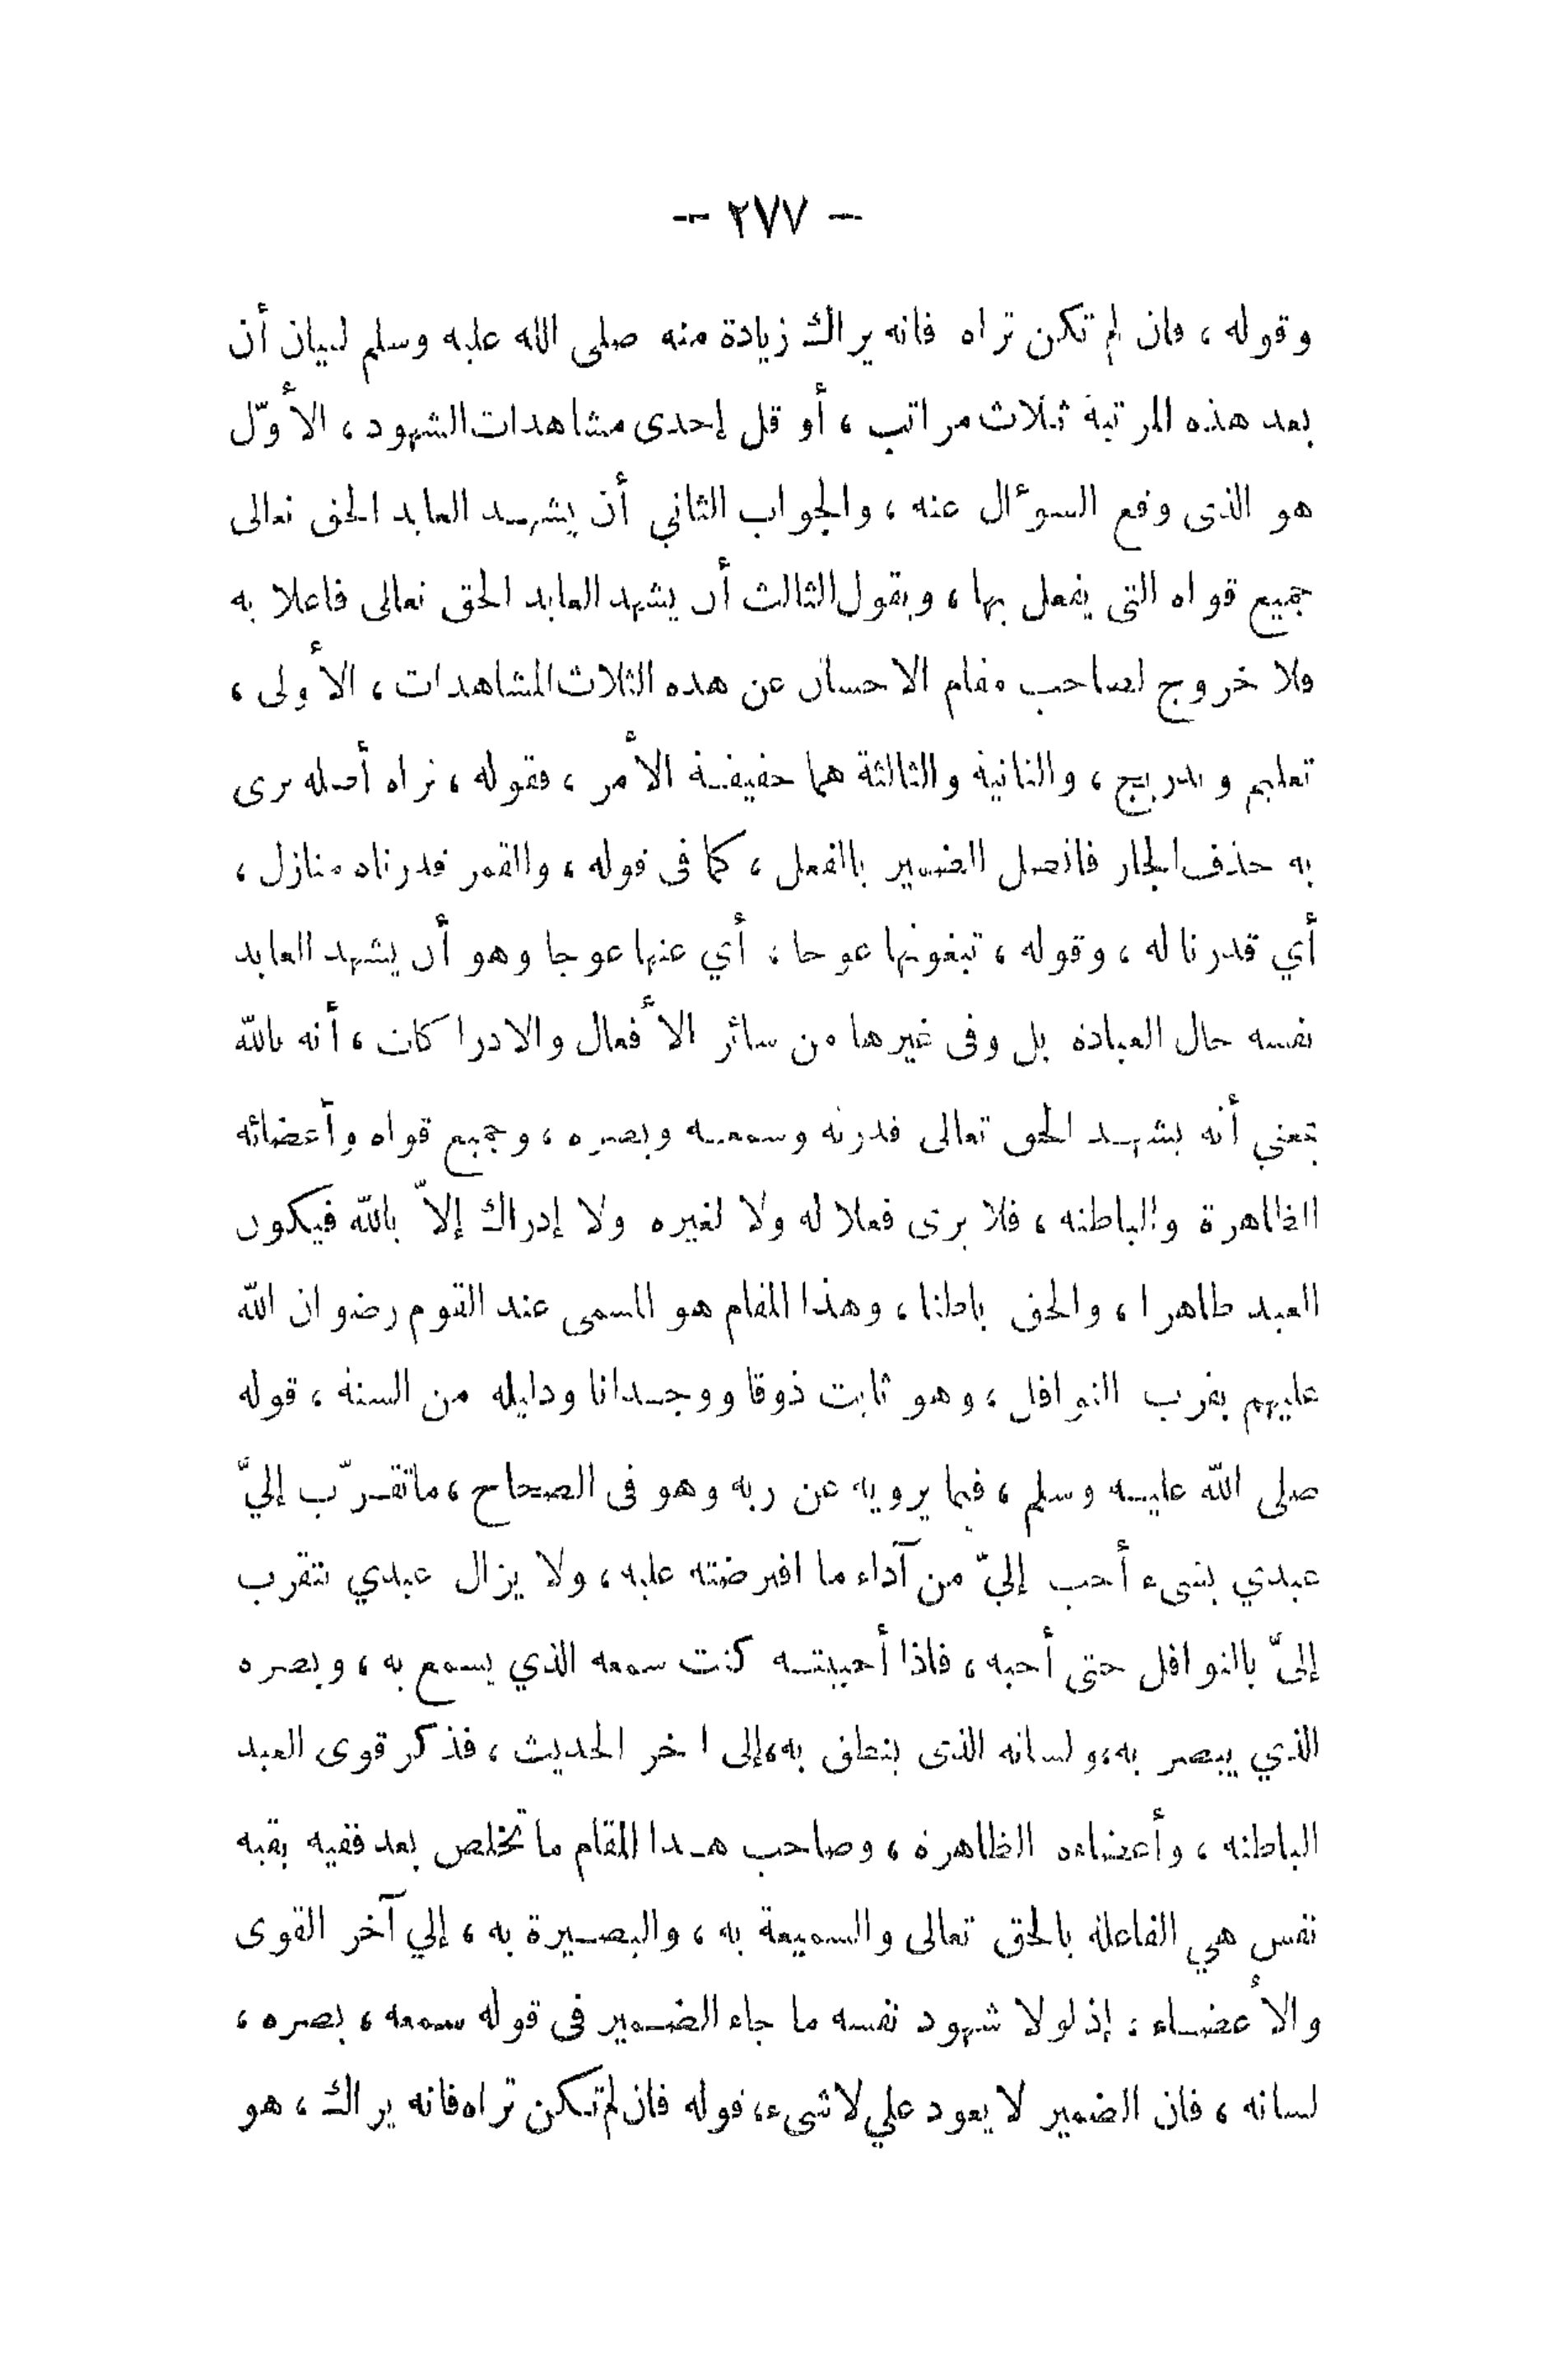 — ٢٧٧ —
وقوله ، فان لم تكن تراه فانه يراك زيادة منه صلى الله عليه وسلم لبيان أن
بعد هذه المرتبة ثلاث مراتب ، أو قل إحدى مشاهدات الشهود ، الأوّل
هو الذى وقع السوءال عنه ، والجواب الثاني أن يشهد العابد الحق تعالى
جميع قواه التى يفعل بها ، وبقول الثالث أن يشهد العابد الحق تعالى فاعلا به
ولا خروج لصاحب مقام الاحسان عن هذه الثلاث المشاهدات ، الأولى ،
تعليم وتدريج ، والثانية والثالثة هما حقيقة الأمر ، فقوله ، تراه أصله ترى
به حذف الجار فاتصل الضمير بالفعل ، كما فى قوله ، والقمر قدرناه منازل ،
أي قدرنا له ، وقوله ، تبغونها عوجا ، أي عنها عوجا وهو أن يشهد العابد
نفسه حال العبادة بل وفى غيرها من سائر الأفعال والادراكات ، أنه بالله
بمعني أنه يشهد الحق تعالى قدرته وسمعه وبصره ، وجميع قواه وأعضائه
الظاهرة والباطنه ، فلا يرى فعلا له ولا لغيره ولا إدراك إلاّ بالله فيكون
العبد ظاهرا ، والحق باطنا ، وهذا المقام هو المسمى عند القوم رضوان الله
عليهم بقرب النوافل ، وهو ثابت ذوقا ووجدانا ودليله من السنة ، قوله
صلى الله عليه وسلم ، فيما يرويه عن ربه وهو فى الصحاح ، ماتقرّب إليّ
عبدي بشىء أحب إليّ من آداء ما افترضته عليه ، ولا يزال عبدي يتقرب
إلىّ بالنوافل حتى أحبه ، فاذا أحببته كنت سمعه الذي يسمع به ، وبصره
الذي يبصر به ، ولسانه الذى ينطق به ، إلى اخر الحديث ، فذكر قوى العبد
الباطنه ، وأعضاءه الظاهرة ، وصاحب هذا المقام ما تخلص بعد ففيه بقيه
نفس هي الفاعلة بالحق تعالى والسميعة به ، والبصيرة به ، إلي آخر القوى
والأعضاء ، إذ لولا شهود نفسه ما جاء الضمير فى قوله سمعه ، بصره ،
لسانه ، فان الضمير لا يعود علي لا شىء ، قوله فان لم تكن تراه فانه يراك ، هو